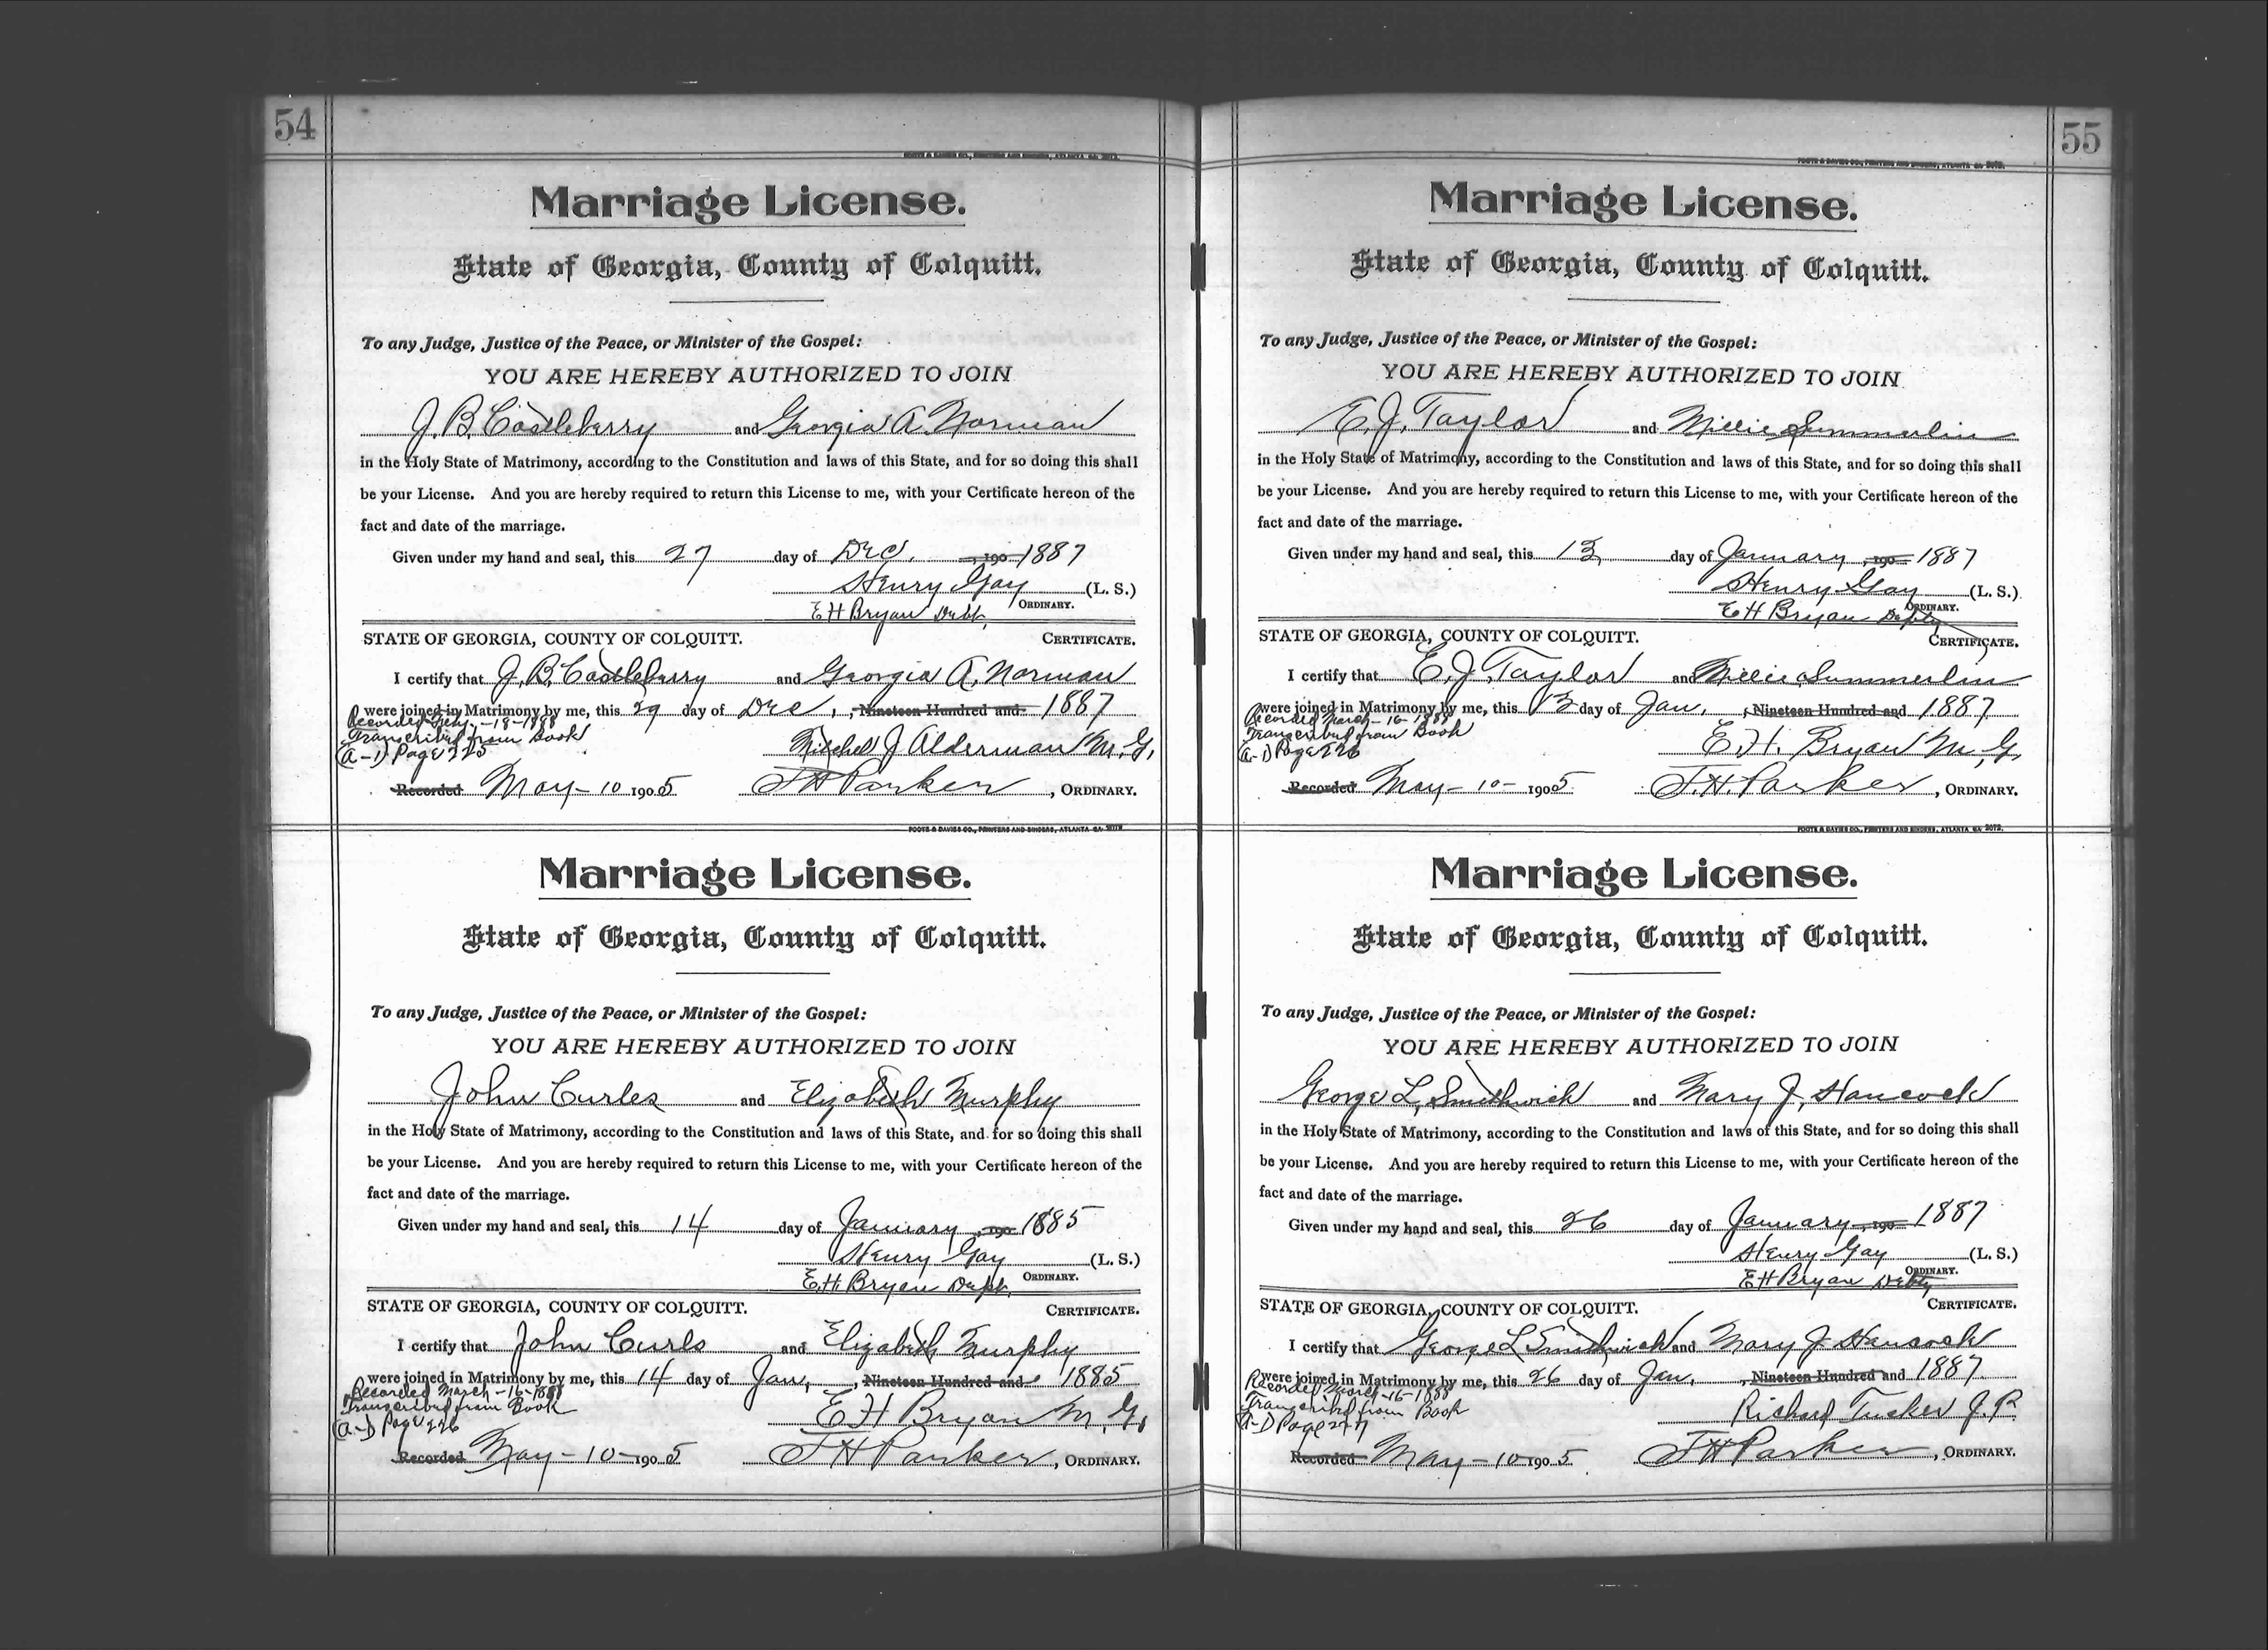 54
FOOTE & DAVIES CO., PRINTERS AND BINDERS, ATLANTA GA
Marriage License.
State of Georgia, County of Colquitt.
To any Judge, Justice of the Peace, or Minister of the Gospel:
YOU ARE HEREBY AUTHORIZED TO JOIN
J. B. Castleberry and Georgia A. Norman
in the Holy State of Matrimony, according to the Constitution and laws of this State, and for so doing this shall
be your License. And you are hereby required to return this License to me, with your Certificate hereon of the
fact and date of the marriage.
Given under my hand and seal, this 27 day of Dec. , 190 1887
Henry Gay (L. S.)
ORDINARY.
E H Bryan Dept.
STATE OF GEORGIA, COUNTY OF COLQUITT. CERTIFICATE.
I certify that J. B. Castleberry and Georgia A. Norman
were joined in Matrimony by me, this 29 day of Dec., , Nineteen Hundred and 1887
Recorded Feby. -18-1888
Transcribed from Book
(A-1) Page 225
Mitchel J Alderman M. G.
Recorded May-10 1905 J H Parker , ORDINARY.
FOOTE & DAVIES CO., PRINTERS AND BINDERS, ATLANTA GA
Marriage License.
State of Georgia, County of Colquitt.
To any Judge, Justice of the Peace, or Minister of the Gospel:
YOU ARE HEREBY AUTHORIZED TO JOIN
John Curles and Elizabeth Murphy
in the Holy State of Matrimony, according to the Constitution and laws of this State, and for so doing this shall
be your License. And you are hereby required to return this License to me, with your Certificate hereon of the
fact and date of the marriage.
Given under my hand and seal, this 14 day of January , 190 1885
Henry Gay (L. S.)
ORDINARY.
E. H. Bryan Dept.
STATE OF GEORGIA, COUNTY OF COLQUITT. CERTIFICATE.
I certify that John Curls and Elizabeth Murphy
were joined in Matrimony by me, this 14 day of Jan, , Nineteen Hundred and 1885
Recorded March-16-1888
Transcribed from Book
(A-1) Page 226
E H Bryan M. G.
Recorded May-10-1905 J H Parker , ORDINARY.
55
FOOTE & DAVIES CO., PRINTERS AND BINDERS, ATLANTA GA 2072.
Marriage License.
State of Georgia, County of Colquitt.
To any Judge, Justice of the Peace, or Minister of the Gospel:
YOU ARE HEREBY AUTHORIZED TO JOIN
E. J. Taylor and Millie Summerlin
in the Holy State of Matrimony, according to the Constitution and laws of this State, and for so doing this shall
be your License. And you are hereby required to return this License to me, with your Certificate hereon of the
fact and date of the marriage.
Given under my hand and seal, this 13 day of January , 190 1887
Henry Gay (L. S.)
ORDINARY.
E H Bryan Depty
STATE OF GEORGIA, COUNTY OF COLQUITT. CERTIFICATE.
I certify that E. J. Taylor and Millie Summerlin
were joined in Matrimony by me, this 13 day of Jan. , Nineteen Hundred and 1887
Recorded March-16-1888
Transcribed from Book
(A-1) Page 226
E. H. Bryan M. G.
Recorded May-10-1905 J. H. Parker , ORDINARY.
FOOTE & DAVIES CO., PRINTERS AND BINDERS, ATLANTA GA 2072.
Marriage License.
State of Georgia, County of Colquitt.
To any Judge, Justice of the Peace, or Minister of the Gospel:
YOU ARE HEREBY AUTHORIZED TO JOIN
George L. Smithwick and Mary J. Hancock
in the Holy State of Matrimony, according to the Constitution and laws of this State, and for so doing this shall
be your License. And you are hereby required to return this License to me, with your Certificate hereon of the
fact and date of the marriage.
Given under my hand and seal, this 26 day of January , 190 1887
Henry Gay (L. S.)
ORDINARY.
E H Bryan Depty
STATE OF GEORGIA, COUNTY OF COLQUITT. CERTIFICATE.
I certify that George L Smithwick and Mary J. Hancock
were joined in Matrimony by me, this 26 day of Jan. , Nineteen Hundred and 1887
Recorded March-16-1888
Transcribed from Book
(A-1) Page 227
Richard Tucker J. P.
Recorded May-10-1905 J H Parker , ORDINARY.